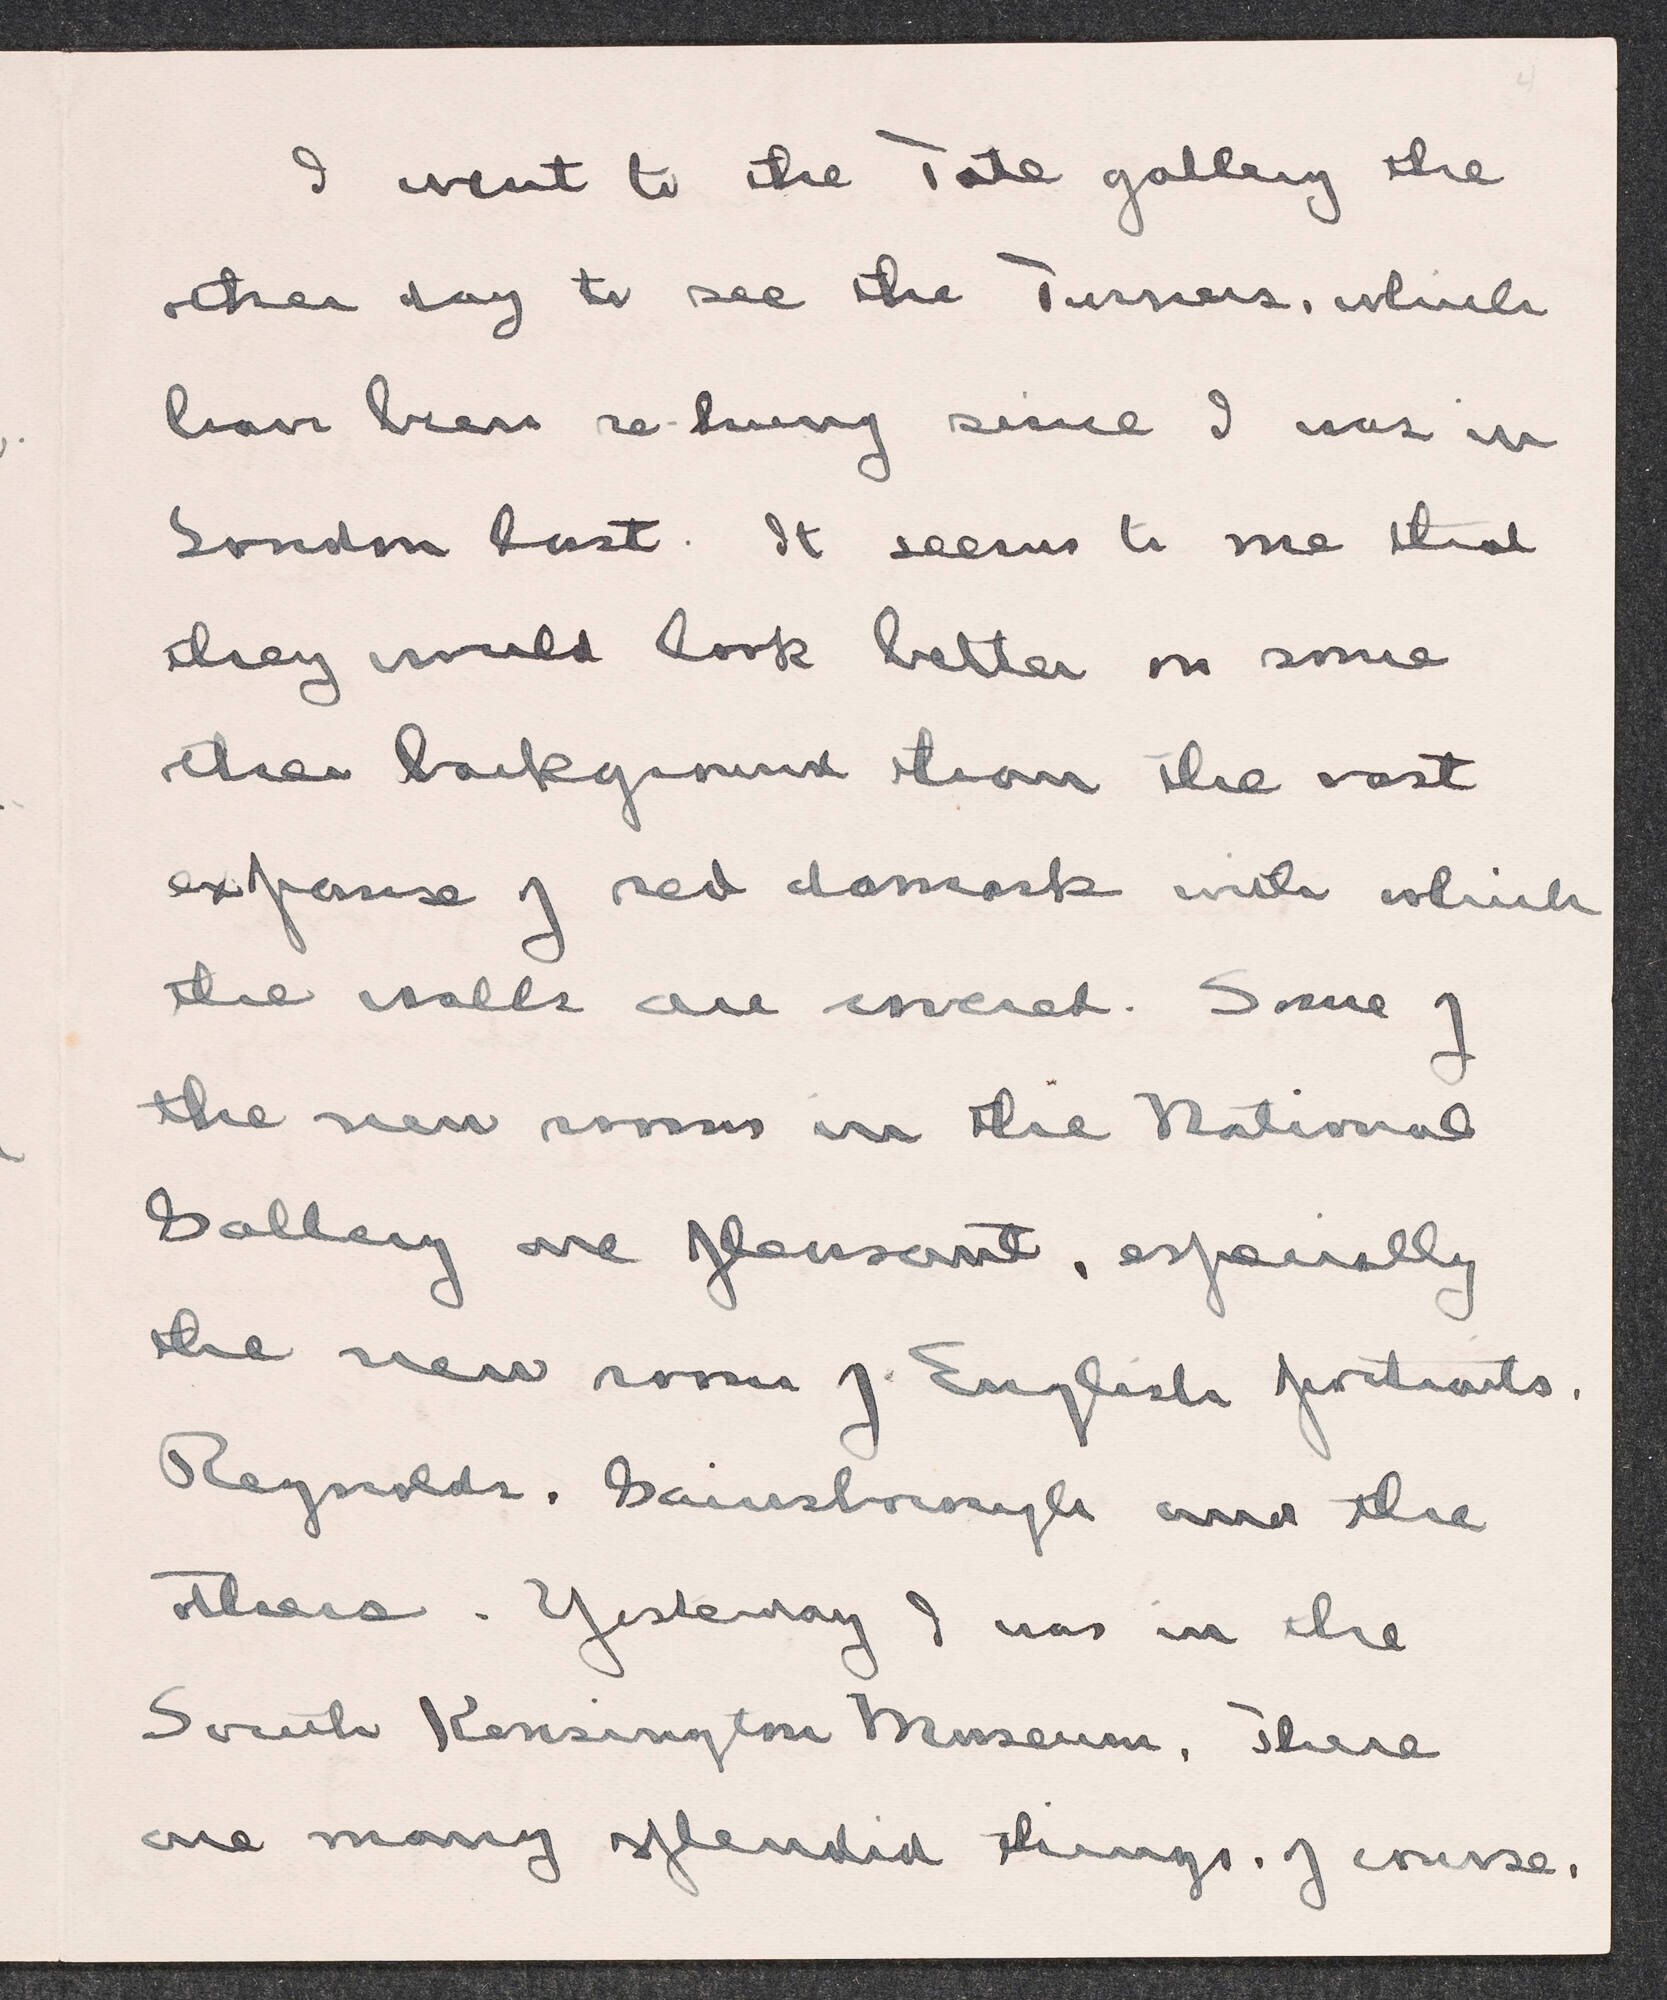 4
I went to the Tate gallery the
other day to see the Turners, which
have been re-hung since I was in
London last. It seems to me that
they would look better on some
other background than the vast
expanse of red damask with which
the walls are covered. Some of
the new rooms in the National
Gallery are pleasant, especially
the new room of English portraits,
Reynolds, Gainsborough and the
others. Yesterday I was in the
South Kensington Museum. There
are many splendid things, of course,